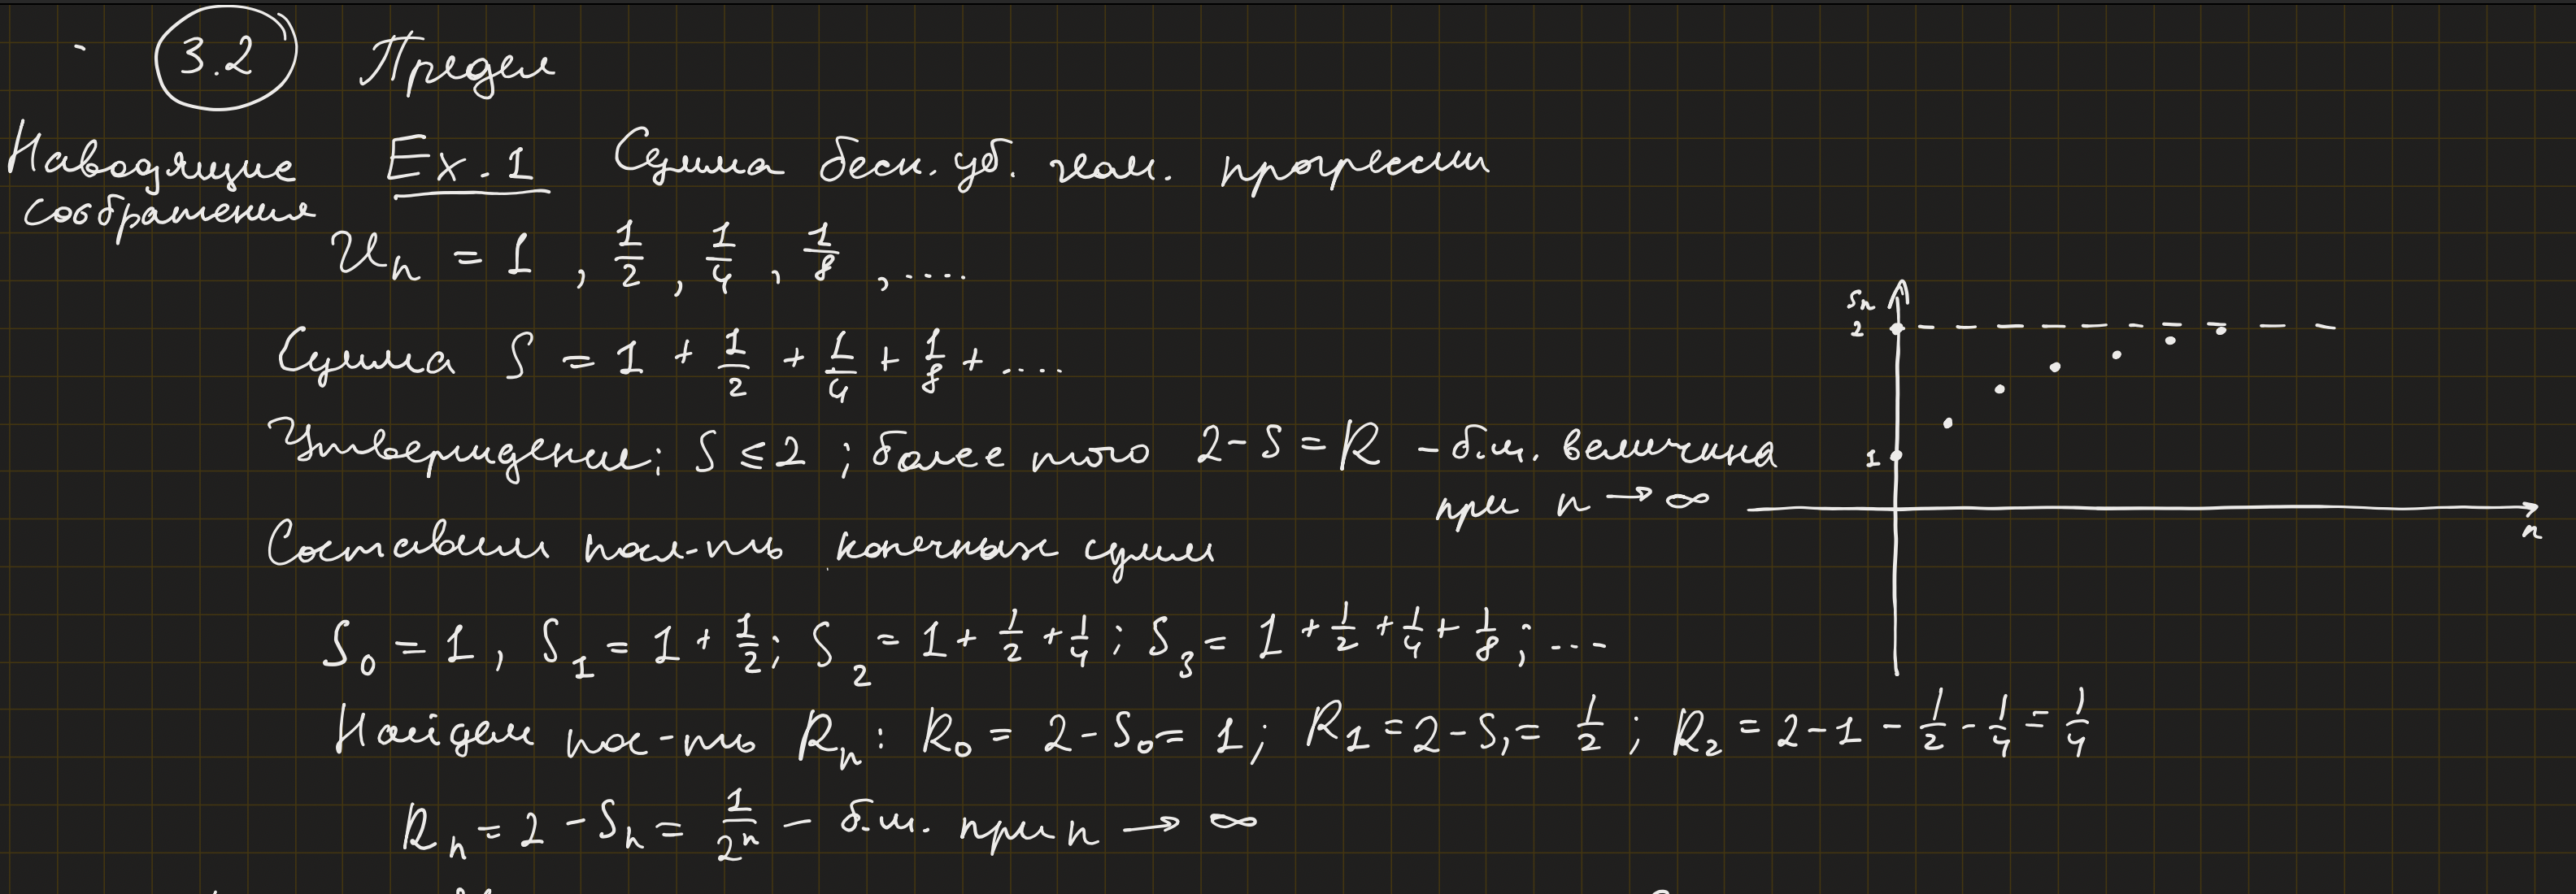 3.2 Предел
Наводящие соображения
Ex. 1 Сумма беск. уб. геом. прогрессии
Uₙ = 1, 1/2, 1/4, 1/8, ....
Сумма S = 1 + 1/2 + 1/4 + 1/8 + ....
Утверждение: S ≤ 2; более того 2 - S = R - б.м. величина
при n → ∞
Составим посл-ть конечных сумм
S₀ = 1, S₁ = 1 + 1/2; S₂ = 1 + 1/2 + 1/4; S₃ = 1 + 1/2 + 1/4 + 1/8; ...
Найдем пос-ть Rₙ: R₀ = 2 - S₀ = 1; R₁ = 2 - S₁ = 1/2; R₂ = 2 - 1 - 1/2 - 1/4 = 1/4
Rₙ = 2 - Sₙ = 1/2ⁿ - б.м. при n → ∞
Sₙ
2
1
n